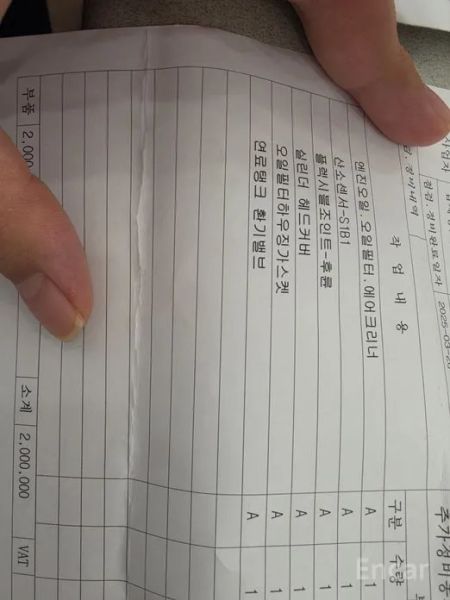 점검.정비완료일자 2025-03-2
작 업 내 용 구분 수량
엔진오일.오일필터.에어크리너 A 1
산소센서-S1B1 A 1
플렉시블조인트-후륜 A 1
실린더 헤드커버 A 1
오일필터하우징가스켓 A 1
연료탱크 환기밸브 A 1
부품 2,000 소계 2,000.000 VAT
Encar